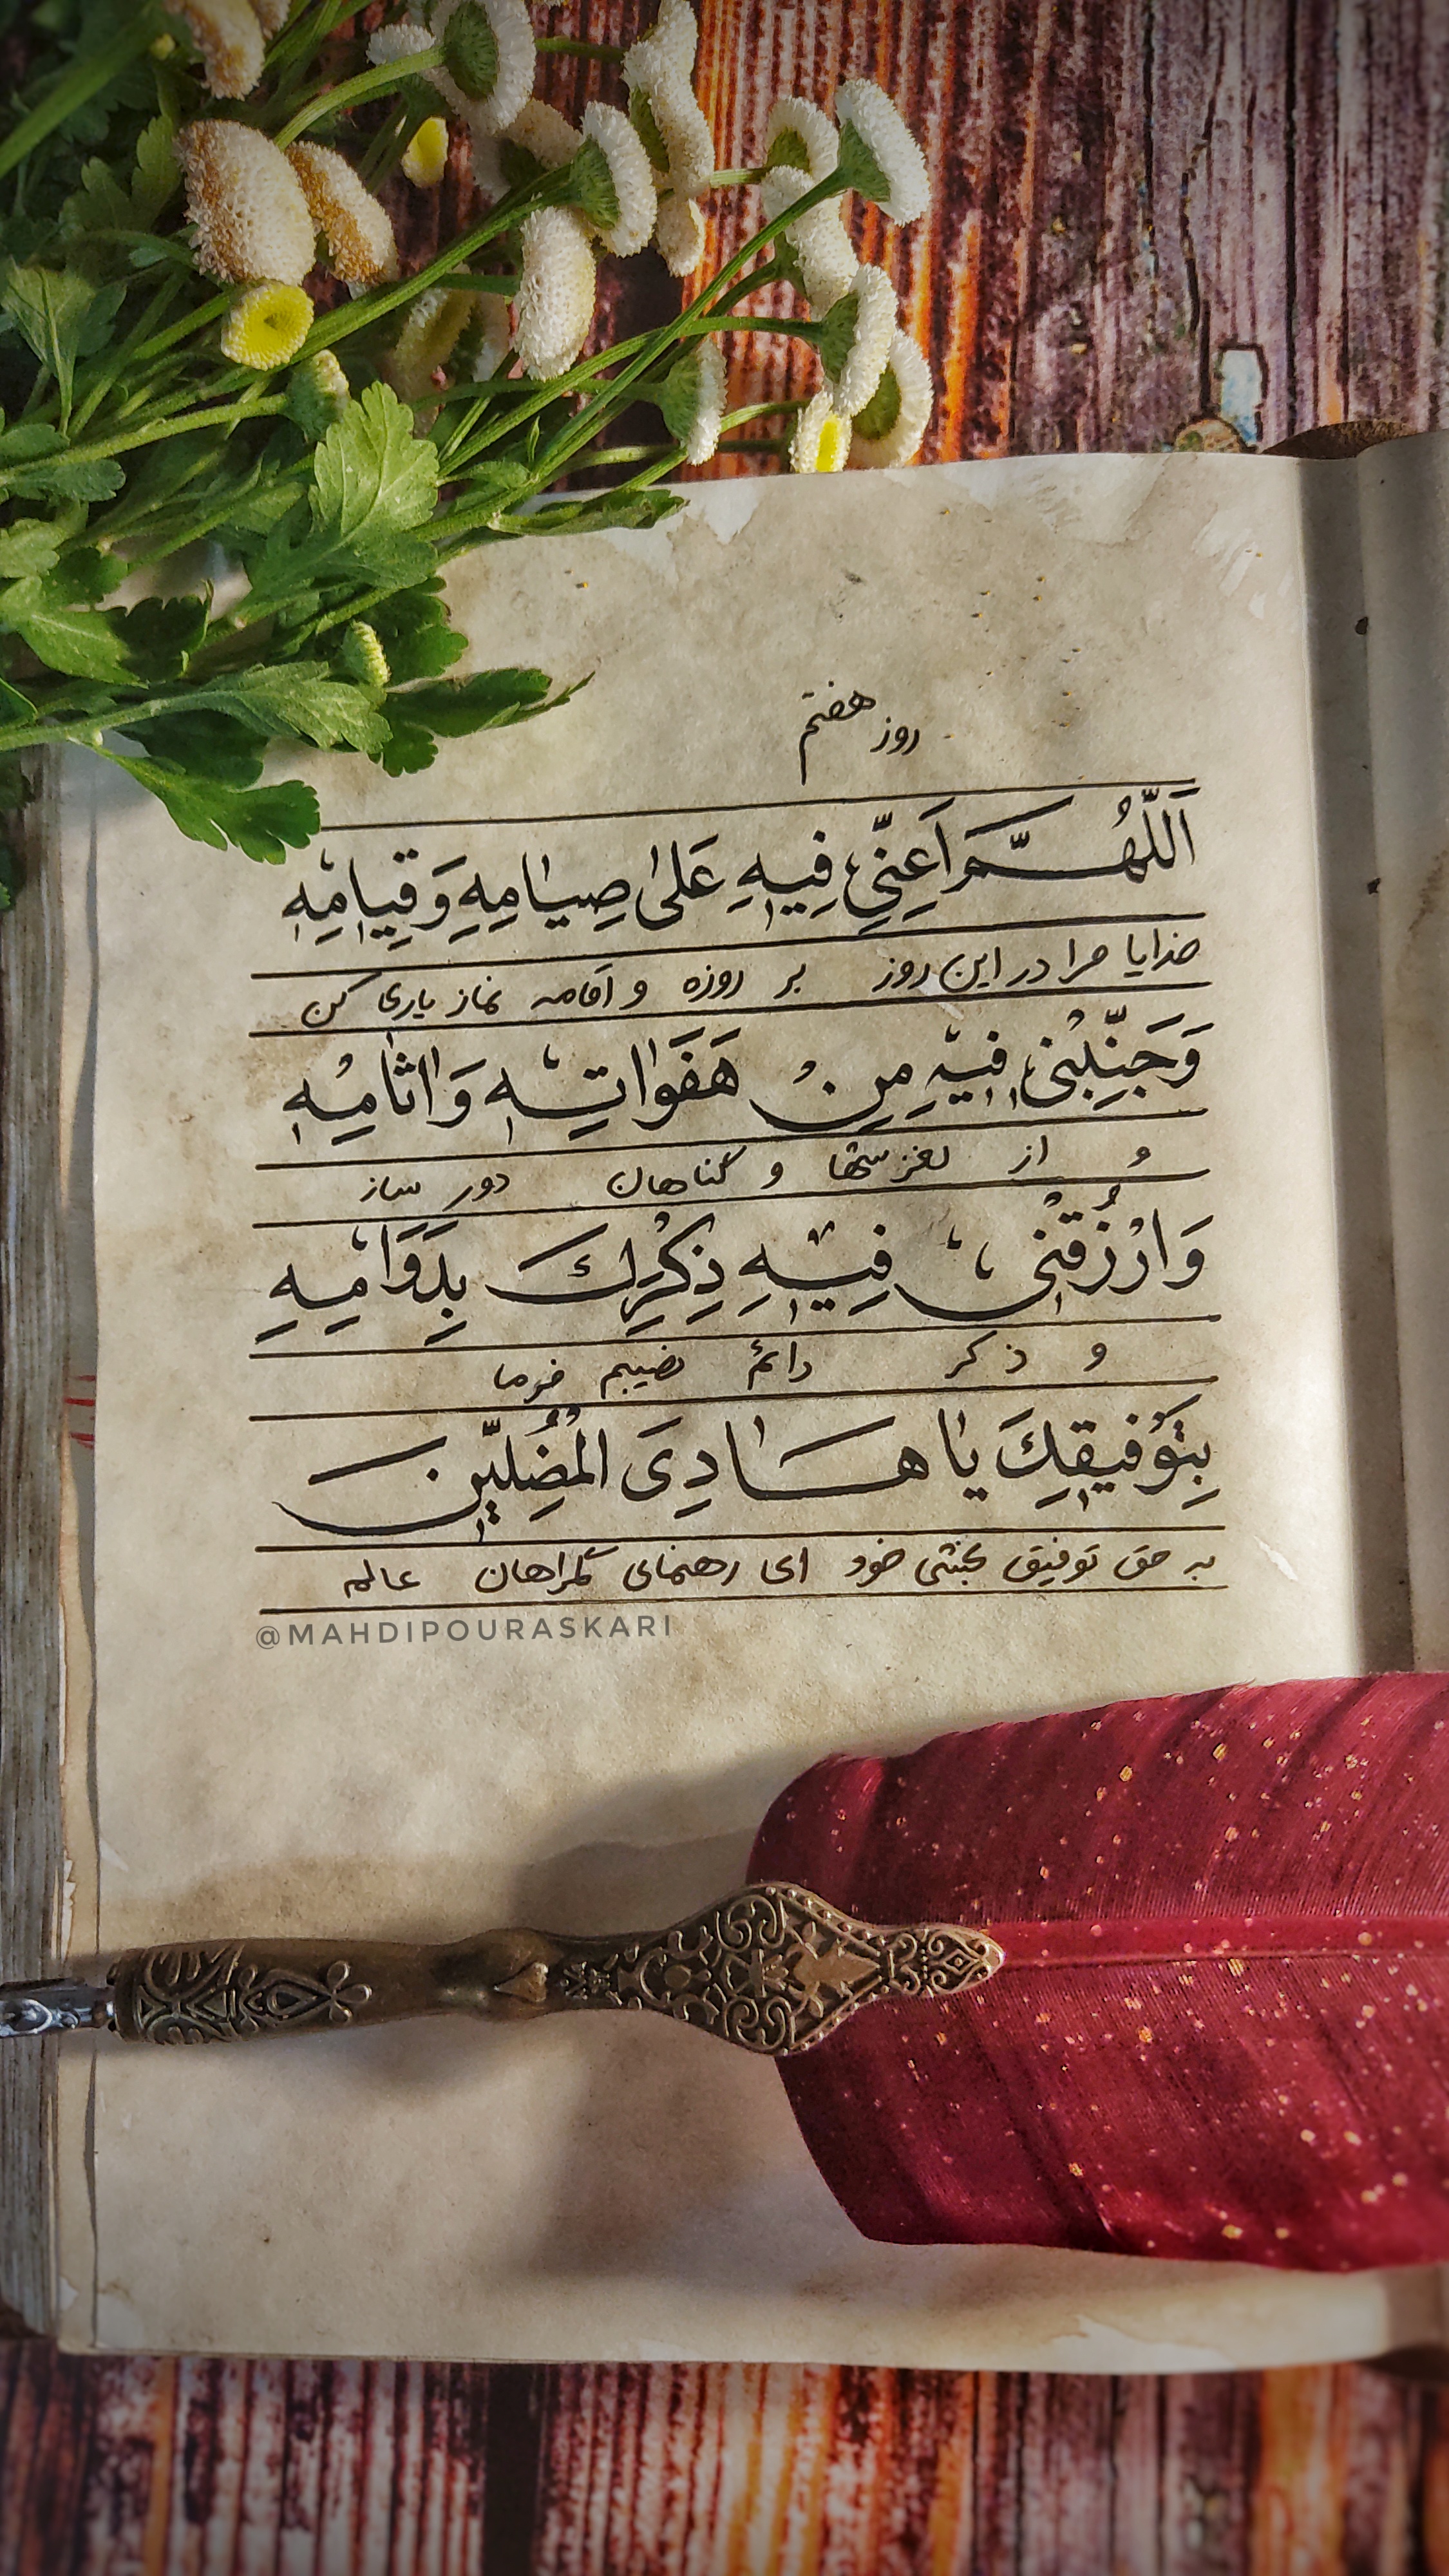 روز هفتم
اَللّٰهُمَّ اَعِنّی فِیهِ عَلىٰ صِیٰامِهِ وَقِیٰامِهِ
خدایا مرا در این روز بر روزه و اقامه نماز یاری کن
وَجَنِّبْنی فیهِ مِنْ هَفَوٰاتِهِ وَاثٰامِهِ
و از لغزشها و گناهان دور ساز
وَارْزُقْنی فیهِ ذِکْرَكَ بِدَوٰامِهِ
و ذکر دائم نصیبم فرما
بِتَوْفیقِكَ یٰا هٰادِیَ الْمُضِلّینَ
به حق توفیق بخشی خود ای رهنمای گمراهان عالم
@MAHDIPOURASKARI